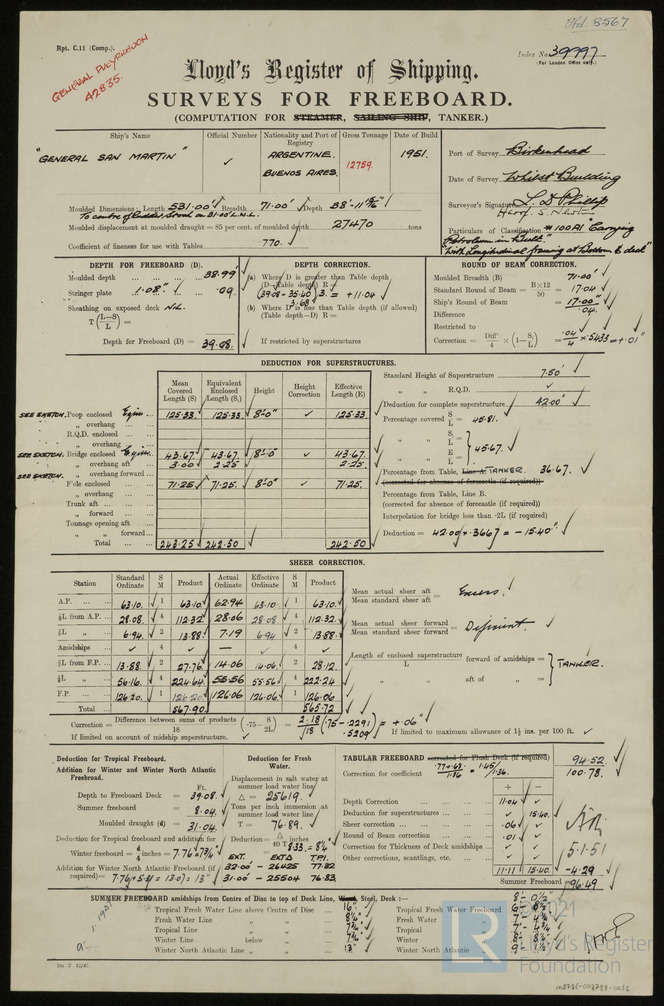 Wel. 8567
Rpt. C.11 (Comp.).
Index No. 39997
(For London Office only.)
GENERAL PUEYRREDON
42835.
Lloyd's Register of Shipping.
SURVEYS FOR FREEBOARD.
(COMPUTATION FOR STEAMER, SAILING SHIP, TANKER.)
Ship's Name Official Number Nationality and Port of Registry Gross Tonnage Date of Build
"GENERAL SAN MARTIN" ✓ ARGENTINE. BUENOS AIRES. 12759. 1951.
Port of Survey Birkenhead
Date of Survey Whilst Building
Surveyor's Signature L. D. Phillip
Harof. S. Newton
Particulars of Classification ✠100A1 "Carrying
Petroleum in Bulk"
"with Longitudinal framing at Bottom & deck"
Moulded Dimensions: Length 531.00' Breadth 71.00' Depth 38'-11
To centre of Rudder Stock on 31.00' L.W.L.
Moulded displacement at moulded draught = 85 per cent. of moulded depth 27470 tons
Coefficient of fineness for use with Tables .770.
DEPTH FOR FREEBOARD (D).
Moulded depth ... 38.99
Stringer plate 1.08" .09
Sheathing on exposed deck NIL.
T (L-S/L) =
Depth for Freeboard (D) = 39.08.
DEPTH CORRECTION.
(a) Where D is greater than Table depth
(D-Table depth) R =
(39.08-35.40) 3. = +11.04
3.68
(b) Where D is less than Table depth (if allowed)
(Table depth-D) R =
If restricted by superstructures
ROUND OF BEAM CORRECTION.
Moulded Breadth (B) 71.00'
Standard Round of Beam = B×12/50 = 17.04
Ship's Round of Beam = 17.00"
Difference .04
Restricted to
Correction = Diff/4 × (1-S/L) = .04/4 × .5433 = +.01"
DEDUCTION FOR SUPERSTRUCTURES.
Mean Covered Length (S) Equivalent Enclosed Length (S₁) Height Height Correction Effective Length (E)
SEE SKETCH. Poop enclosed 125.33 125.33 8'-0" ✓ 125.33
„ overhang
R.Q.D. enclosed
„ overhang
SEE SKETCH. Bridge enclosed 43.67 43.67 8'-0" ✓ 43.67
„ overhang aft 3.00 2.25 2.25
„ overhang forward
SEE SKETCH. F'cle enclosed 71.25 71.25 8'-0" ✓ 71.25
„ overhang
Trunk aft
„ forward
Tonnage opening aft
„ „ forward
Total 243.25 242.50 242.50
Standard Height of Superstructure 7.50'
„ „ R.Q.D. ✓
Deduction for complete superstructure 42.00"
Percentage covered S/L = 45.81.
„ „ S₁/L =
„ „ E/L = } 45.67.
Percentage from Table, Line A. TANKER. 36.67.
(corrected for absence of forecastle (if required))
Percentage from Table, Line B.
(corrected for absence of forecastle (if required))
Interpolation for bridge less than ·2L (if required)
Deduction = 42.00 × .3667 = -15.40"
SHEER CORRECTION.
Station Standard Ordinate S M Product Actual Ordinate Effective Ordinate S M Product
A.P. 63.10 1 63.10 62.94 63.10 1 63.10
⅙L from A.P. 28.08 4 112.32 28.06 28.08 4 112.32
⅓L „ 6.94 2 13.88 7.19 6.94 2 13.88
Amidships ✓ 4 ✓ — ✓ 4 ✓
⅓L from F.P. 13.88 2 27.76 14.06 14.06 2 28.12
⅙L „ 56.16 4 224.64 55.56 55.56 4 222.24
F.P. 126.20 1 126.20 126.06 126.06 1 126.06
Total 567.90 565.72
Mean actual sheer aft
Mean standard sheer aft = Excess.
Mean actual sheer forward
Mean standard sheer forward = Deficient.
Length of enclosed superstructure forward of amidships =
L
„ „ aft of „ = } TANKER.
Correction = Difference between sums of products/18 (·75-S/2L) = 2.18/18 (.75-.2291) = +.06"
.5209
If limited on account of midship superstructure.
If limited to maximum allowance of 1½ ins. per 100 ft.
Deduction for Tropical Freeboard.
Addition for Winter and Winter North Atlantic Freeboard.
Ft.
Depth to Freeboard Deck = 39.08.
Summer freeboard = 8.04
Moulded draught (d) = 31.04
Deduction for Tropical freeboard and addition for
Winter freeboard = d/4 inches = 7.76 = 7¾"
Addition for Winter North Atlantic Freeboard (if
required) = 7.76 + 5.31 = 13.07 = 13"
Deduction for Fresh Water.
Displacement in salt water at
summer load water line
Δ = 25619.
Tons per inch immersion at
summer load water line
T = 76.89.
Deduction = Δ/40 T inches = 8.33 = 8¼"
EXT. EXTΔ T.P.I.
32.00 - 26425 77.32
31.00 - 25504 76.83
TABULAR FREEBOARD corrected for Flush Deck (if required) 94.52
Correction for coefficient .77+.68/1.36 = 1.45/1.36. 100.78.
+ -
Depth Correction 11.04 ✓
Deduction for superstructures ✓ 15.40
Sheer correction .06 ✓
Round of Beam correction .01 ✓
Correction for Thickness of Deck amidships ✓ ✓
Other corrections, scantlings, etc. ✓
11.11 15.40 -4.29
Summer Freeboard = 96.49
5.1.51
SUMMER FREEBOARD amidships from Centre of Disc to top of Deck Line, Wood, Steel, Deck :— 8'-0½"
Tropical Fresh Water Line above Centre of Disc 16"
Fresh Water Line „ 8¼"
Tropical Line „ 7¾"
Winter Line below „ 7¾"
Winter North Atlantic Line „ „ 13"
Tropical Fresh Water Freeboard 6'-8½"
Fresh Water „ 7'-4¼"
Tropical „ 7'-4¾"
Winter „ 8'-8¼"
Winter North Atlantic „ 9'-1½"
LR
© 2021
Lloyd's Register
Foundation
002786-002788-0052